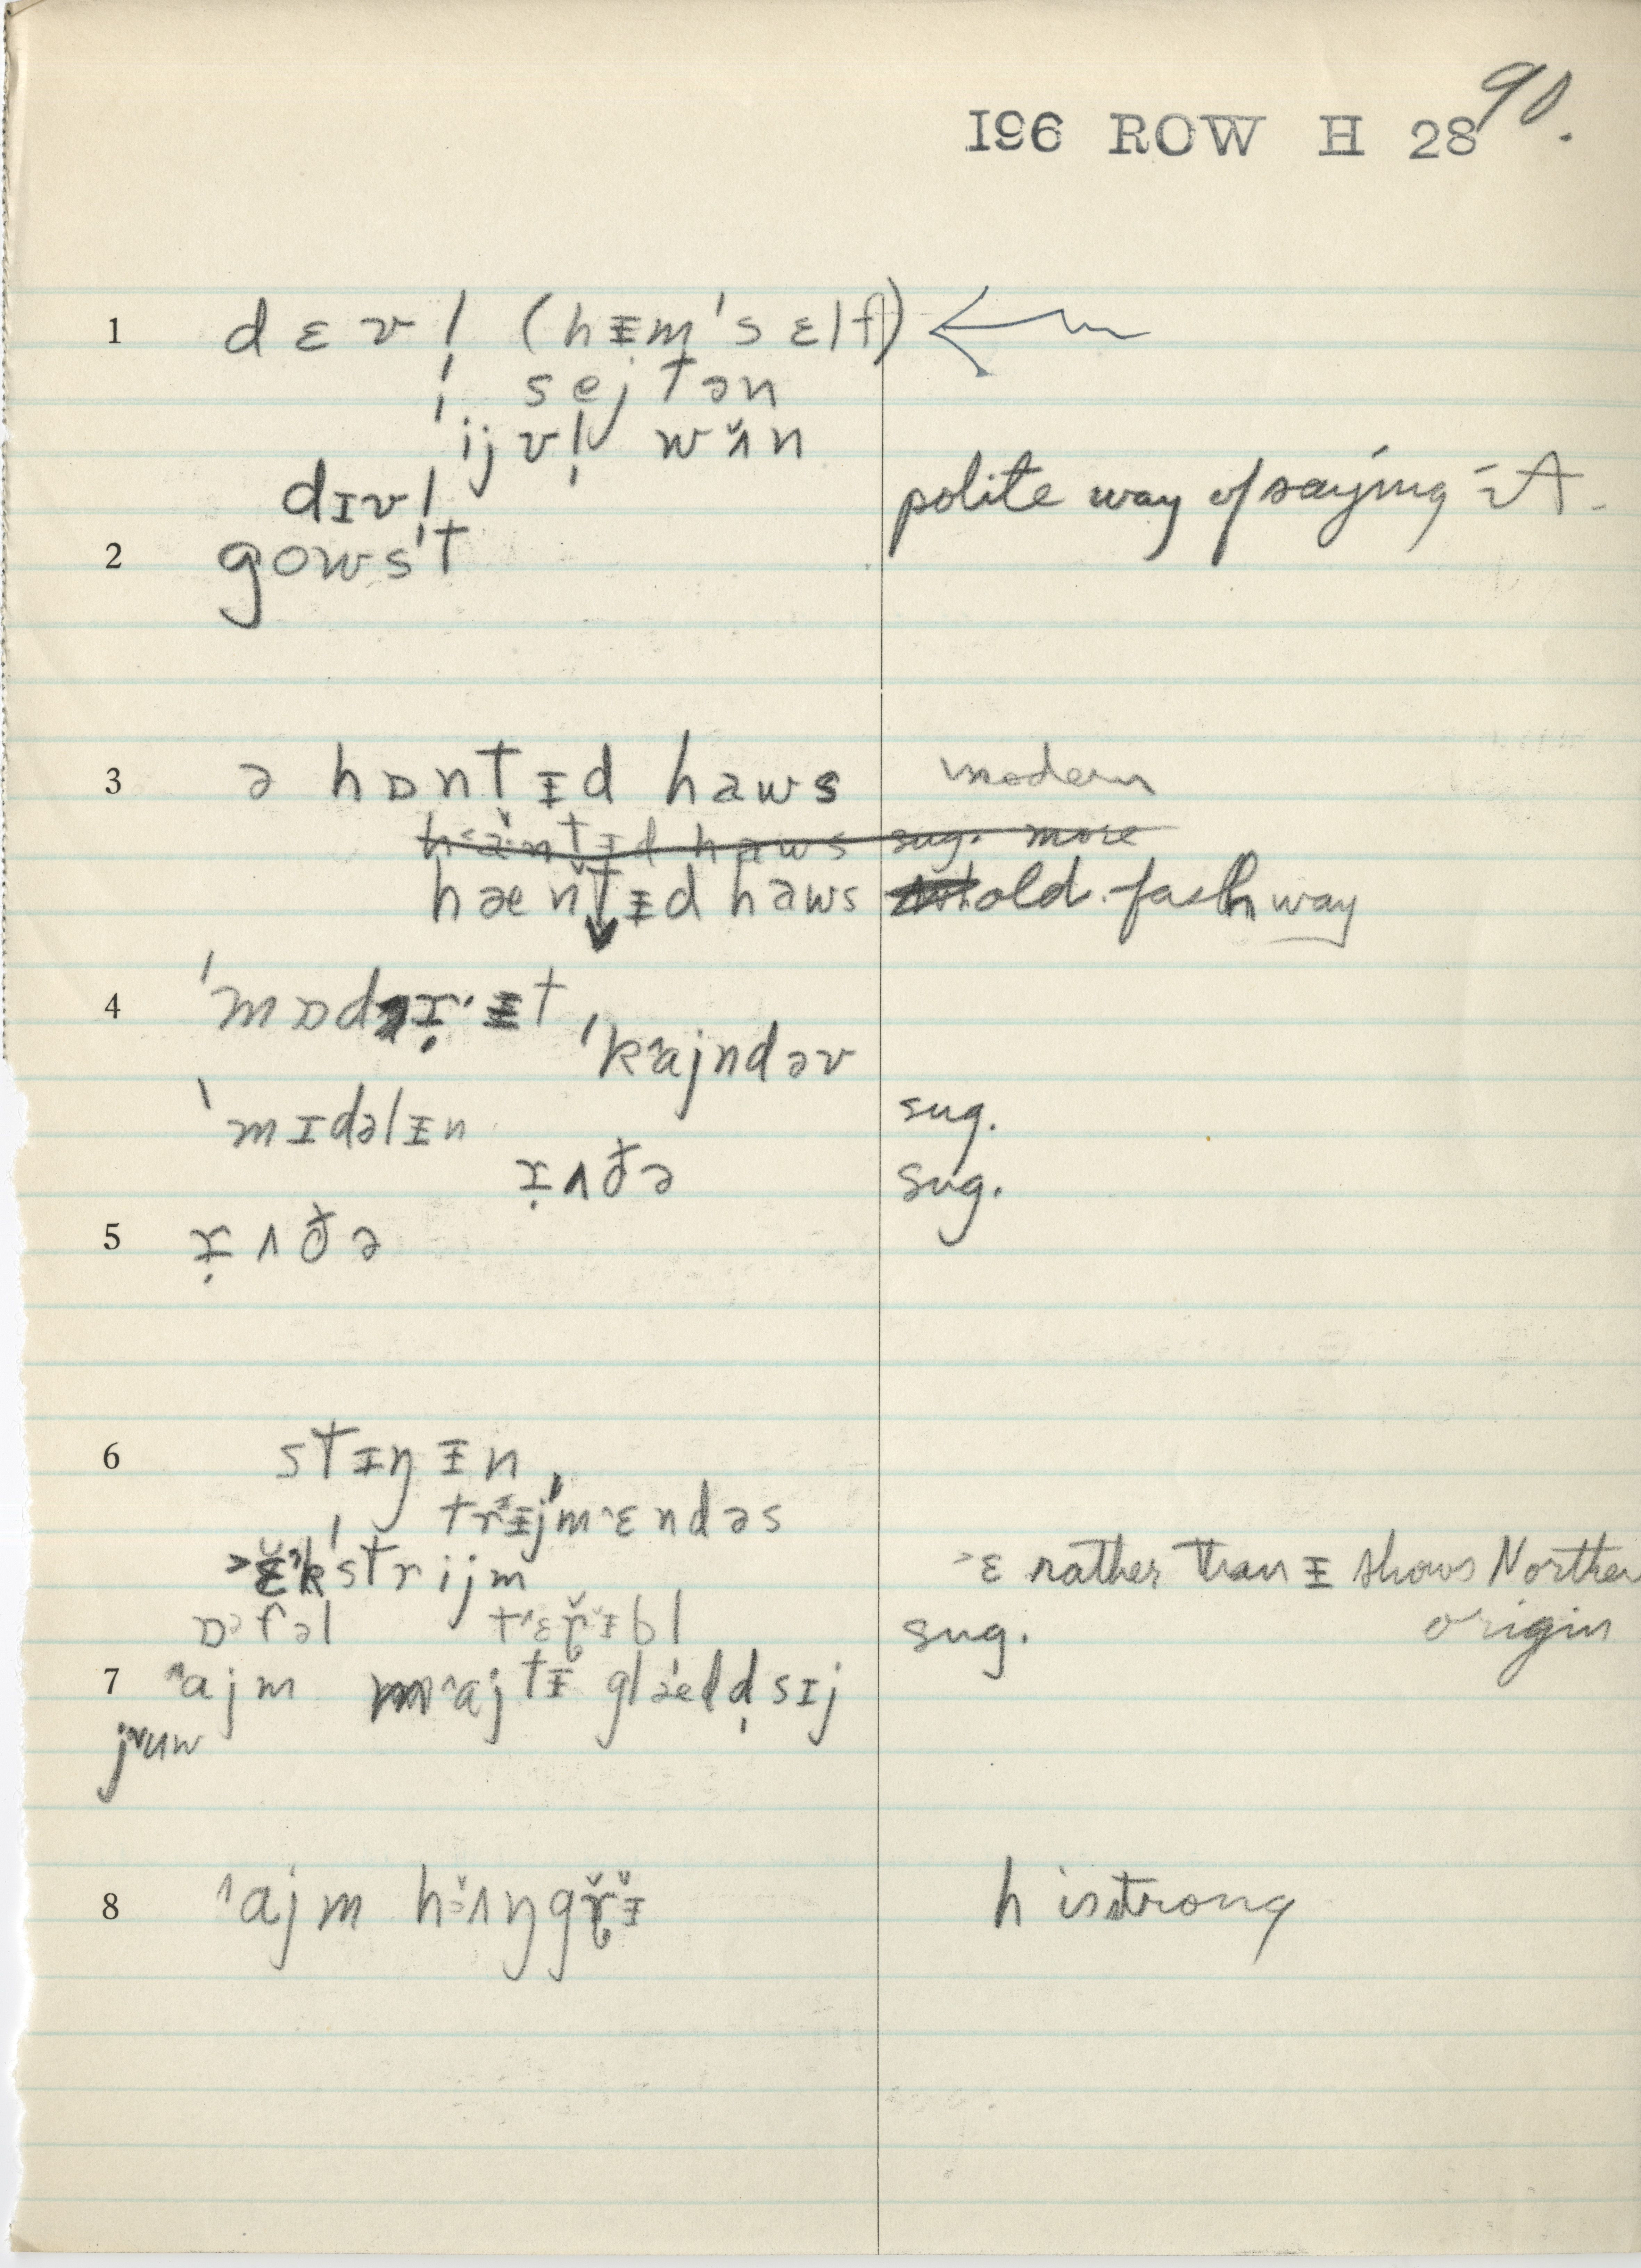 90.
I96 ROW H 28
1 dɛvl̩ (hᵻm'sɛlf)
sejtən
ijvl̩ wʌ̌n
dɪvl̩ polite way of saying it.
2 gows't
3 ə hɒntᵻd haws modern
hæntᵻd haws sug. more
hæntᵻd haws old fash way
4 'mɒdɪ̣ᵻt
'kajndəv
'mɪdəlᵻn sug.
ɪ̣ʌðə sug.
5 ɪ̣ʌðə
6 stᵻŋᵻn
trᵻjmɛndəs
ɛkstrijm ɛ rather than ᵻ shows Northern
origin
ɒfəl tɛɽᵻbl sug.
7 ajm majtᵻ glæd d̩sɪj
juw
8 ajm hʌŋgɽᵻ h is strong